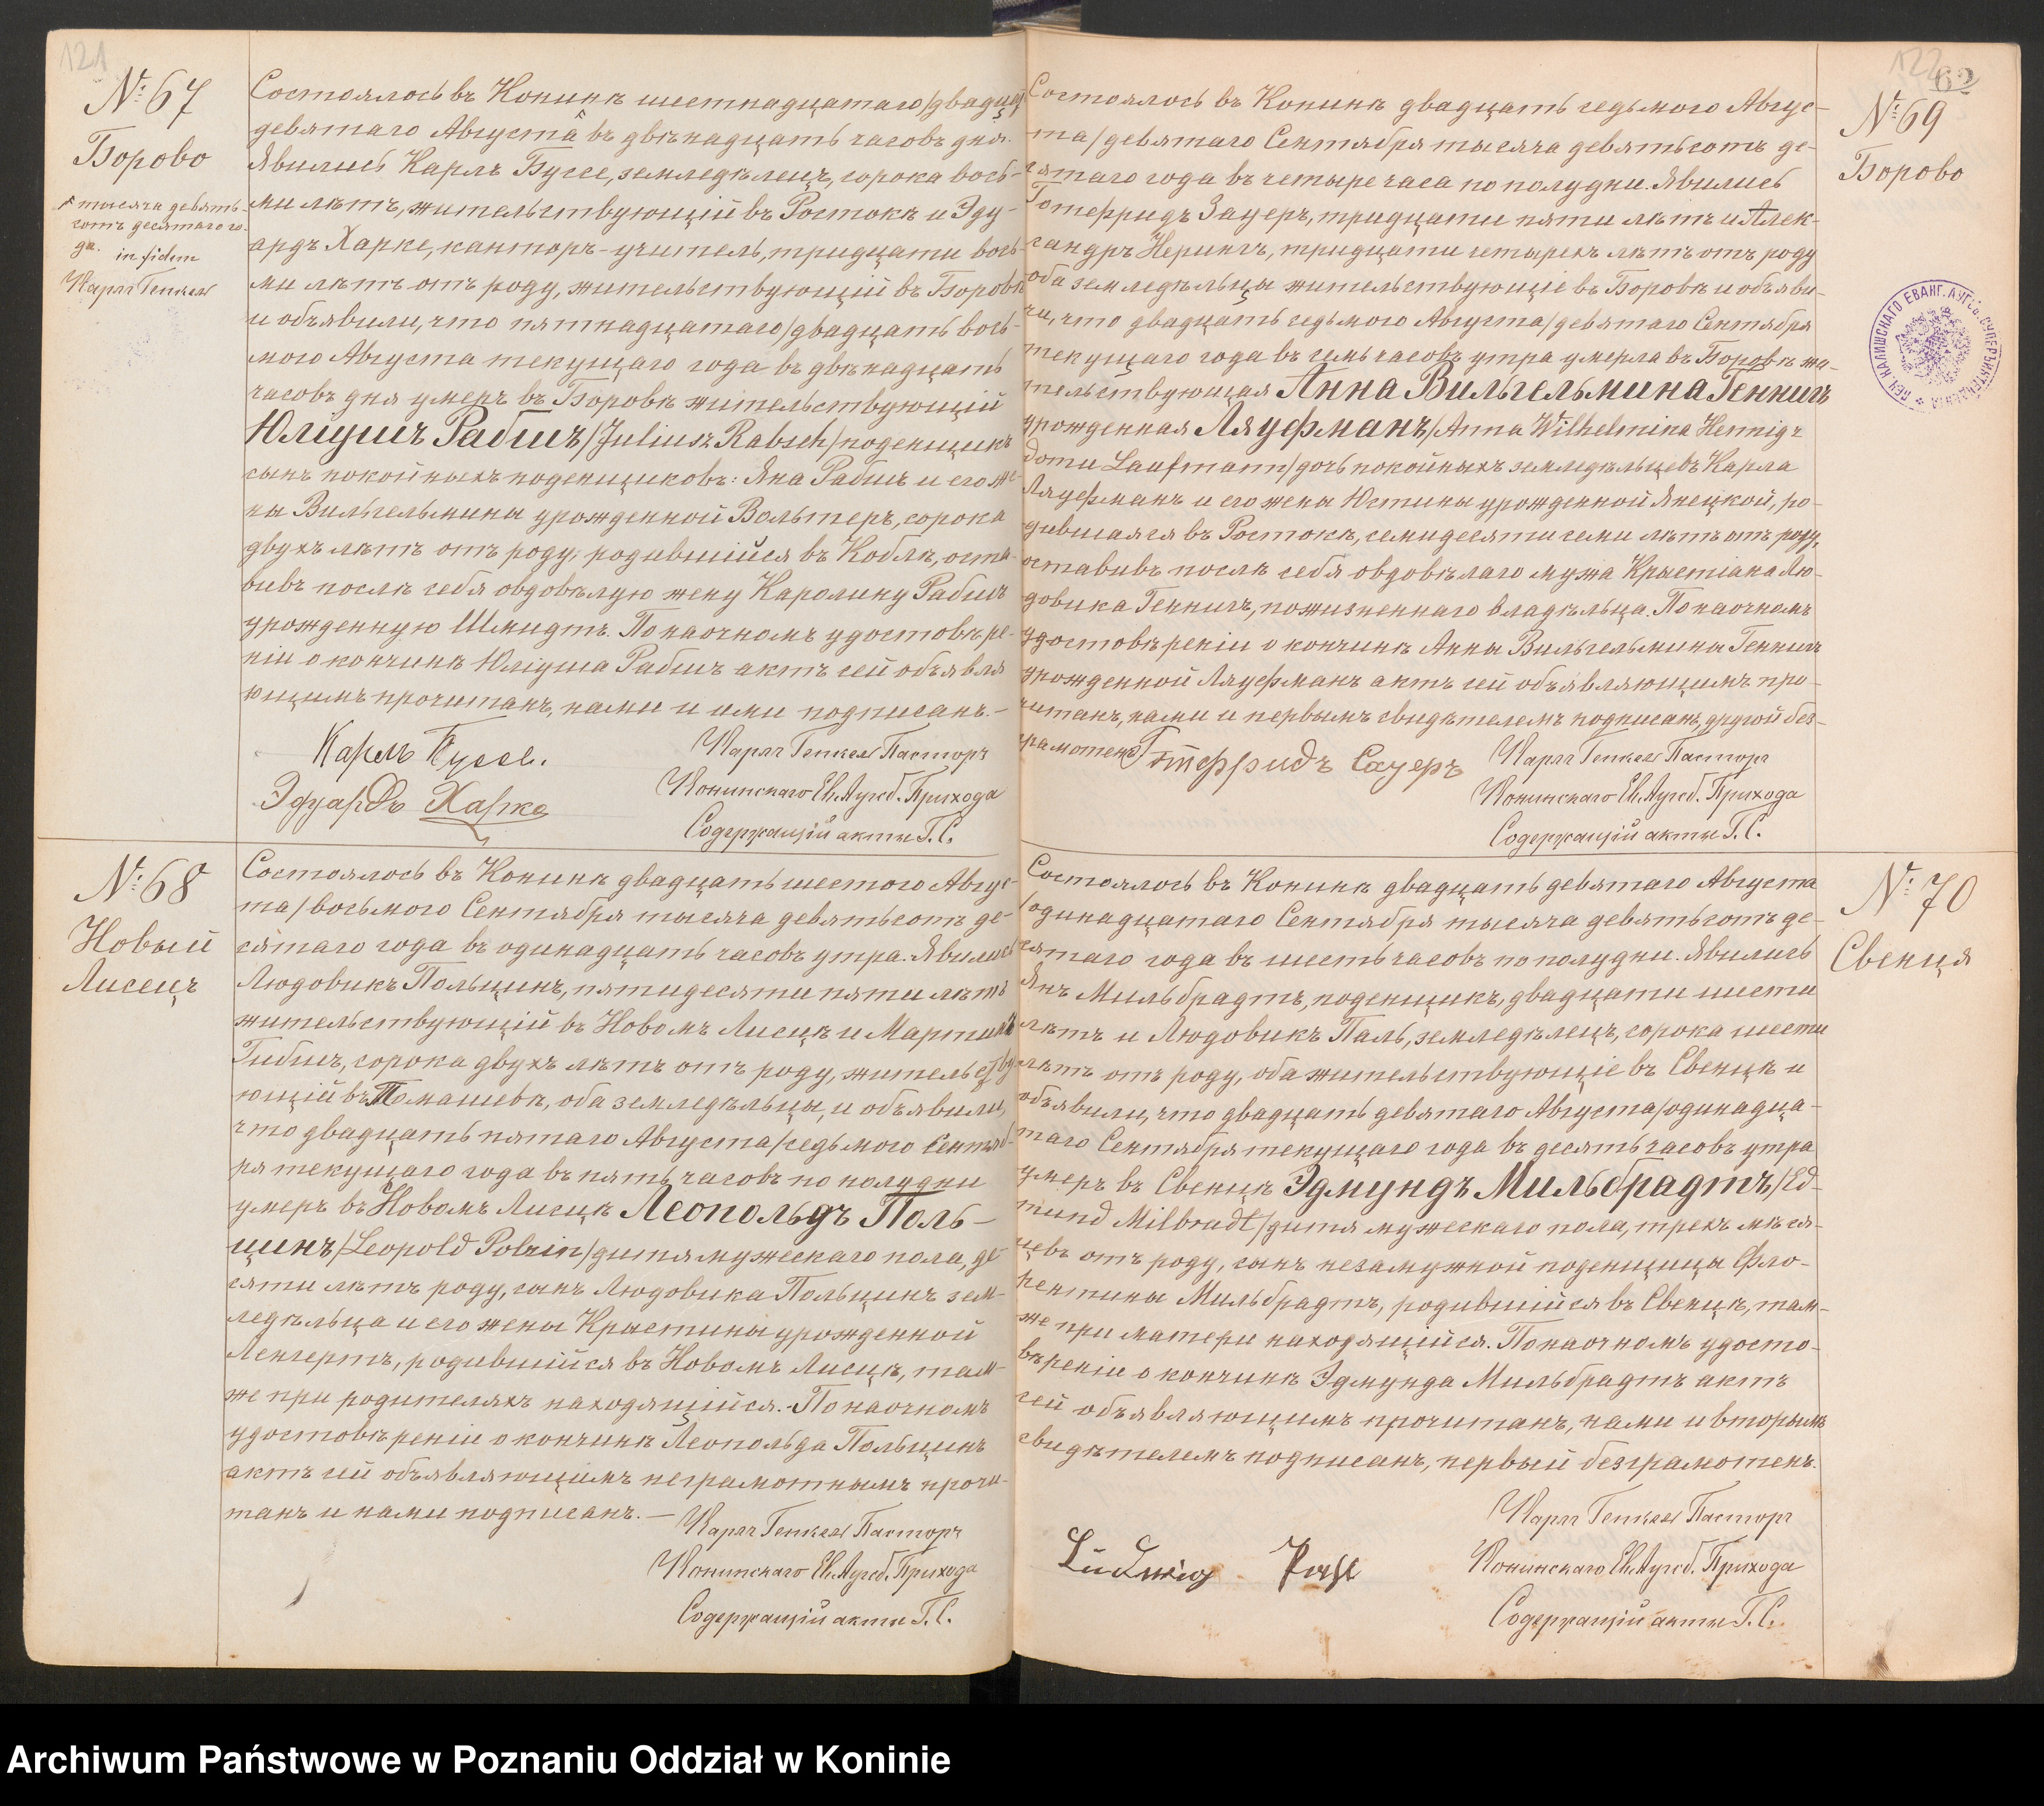 121
№ 67
Борово
* тысяча девять-
сотъ десятаго го-
да. in fidem
Карлъ Генкель
Состоялось въ Конинѣ шестнадцатаго/двадцать
девятаго Августа въ двѣнадцать часовъ дня.
Явились Карлъ Буссе, земледѣлецъ, сорока вось-
ми лѣтъ, жительствующій въ Ростокѣ и Эду-
ардъ Харке, канторъ-учитель, тридцати вось-
ми лѣтъ отъ роду, жительствующій въ Боровѣ
и объявили, что пятнадцатаго/двадцать вось-
мого Августа текущаго года въ двѣнадцать
часовъ дня умеръ въ Боровѣ жительствующій
Юліушъ Рабшъ/Juliusz Rabsch/поденщикъ
сынъ покойныхъ поденщиковъ: Яна Рабшъ и его же-
ны Вильгельмины урожденной Вольтеръ, сорока
двухъ лѣтъ отъ роду, родившійся въ Коблѣ, оста-
вивъ послѣ себя овдовѣлую жену Каролину Рабшъ
урожденную Шмидтъ. По наочномъ удостовѣре-
ніи о кончинѣ Юліуша Рабшъ актъ сей объявля
ющимъ прочитанъ, нами и ими подписанъ.-
Карлъ Буссе.
Эдуардъ Харке
Карлъ Генкель Пасторъ
Конинскаго Ев. Аугсб. Прихода
Содержащій акты Г. С.
№ 68
Новый
Лисецъ
Состоялось въ Конинѣ двадцать шестого Авгус-
та/восьмого Сентября тысяча девятьсотъ де-
сятаго года въ одинадцать часовъ утра. Явились
Людовикъ Польцинъ, пятидесяти пяти лѣтъ
жительствующій въ Новомъ Лисцѣ и Мартинъ
Гибшъ, сорока двухъ лѣтъ отъ роду, жительству
ющій въ Томашевѣ, оба земледѣльцы, и объявили,
что двадцать пятаго Августа/седьмого Сентяб-
ря текущаго года въ пять часовъ по полудни
умеръ въ Новомъ Лисцѣ Леопольдъ Поль-
цинъ/Leopold Polzin/дитя мужескаго пола, де-
сяти лѣтъ роду, сынъ Людовика Польцинъ зем-
ледѣльца и его жены Крыстины урожденной
Ленгертъ, родившійся въ Новомъ Лисцѣ, там-
же при родителяхъ находящійся.-По наочномъ
удостовѣреніи о кончинѣ Леопольда Польцинъ
актъ сей объявляющимъ неграмотнымъ прочи-
танъ и нами подписанъ.—
Карлъ Генкель Пасторъ
Конинскаго Ев. Аугсб. Прихода
Содержащій акты Г. С.
122
62
№ 69
Борово
Состоялось въ Конинѣ двадцать седьмого Авгус-
та/девятаго Сентября тысяча девятьсотъ де-
сятаго года въ четыре часа по полудни. Явились
Готфридъ Зауеръ, тридцати пяти лѣтъ и Алек-
сандръ Нерингъ, тридцати четырехъ лѣтъ отъ роду
оба земледѣльцы жительствующіе въ Боровѣ и объяви-
ли, что двадцать седьмого Августа/девятаго Сентября
текущаго года въ семь часовъ утра умерла въ Боровѣ жи-
тельствующая Анна Вильгельмина Геннигъ
урожденная Ляуфманъ/Anna Wilhelmina Hennig z
domu Laufmann/дочь покойныхъ земледѣльцевъ Карла
Ляуфманъ и его жены Юстины урожденной Янецкой, ро-
дившаяся въ Ростокѣ, семидесяти семи лѣтъ отъ роду,
оставивъ послѣ себя овдовѣлаго мужа Крыстіана Лю-
довика Геннигъ, пожизненнаго владѣльца. По наочномъ
удостовѣреніи о кончинѣ Анны Вильгельмины Геннигъ
урожденной Ляуфманъ актъ сей объявляющимъ про-
читанъ, нами и первымъ свидѣтелемъ подписанъ, другой без-
грамотенъ.
Готфридъ Сауеръ
Карлъ Генкель Пасторъ
Конинскаго Ев. Аугсб. Прихода
Содержащій акты Г. С.
№ 70
Свенця
Состоялось въ Конинѣ двадцать девятаго Августа
/одинадцатаго Сентября тысяча девятьсотъ де-
сятаго года въ шесть часовъ по полудни. Явились
Янъ Мильбрадтъ, поденщикъ, двадцати шести
лѣтъ и Людовикъ Паль, земледѣлецъ, сорока шести
лѣтъ отъ роду, оба жительствующіе въ Свенцѣ и
объявили, что двадцать девятаго Августа/одинадца-
таго Сентября текущаго года въ десять часовъ утра
умеръ въ Свенцѣ Эдмундъ Мильбрадтъ/Ed-
mund Milbradt/дитя мужескаго пола, трехъ мѣся-
цевъ отъ роду, сынъ незамужной поденщицы Фло-
рентины Мильбрадтъ, родившійся въ Свенцѣ, там-
же при матери находящійся. По наочномъ удосто-
вѣреніи о кончинѣ Эдмунда Мильбрадтъ актъ
сей объявляющимъ прочитанъ, нами и вторымъ
свидѣтелемъ подписанъ, первый безграмотенъ.
Ludwig Pahl
Карлъ Генкель Пасторъ
Конинскаго Ев. Аугсб. Прихода
Содержащій акты Г. С.
Archiwum Państwowe w Poznaniu Oddział w Koninie